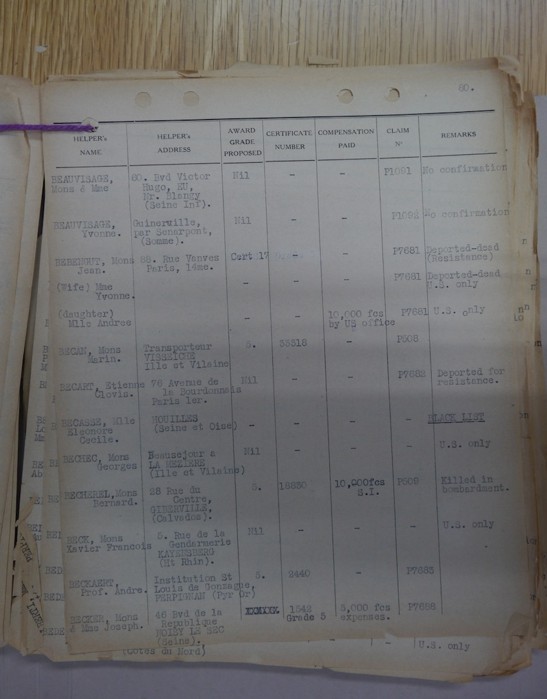 60.
HELPER's NAME HELPER's ADDRESS AWARD GRADE PROPOSED CERTIFICATE NUMBER COMPENSATION PAID CLAIM N° REMARKS
BEAUVISAGE, 60. Bvd Victor Nil - - P1091 No confirmation
Mons & Mme Hugo, EU,
Nr. Blangy
(Seine Inf).
BEAUVISAGE, Guimerville, Nil - - P1092 No confirmation
Yvonne. par Senarpont,
(Somme).
Mons 88. Rue Vanves Cert 17 P7681 Deported-dead
Jean. Paris, 14me. (Resistance)
P7681 Deported-dead
(Wife) Mme - - U.S. only
Yvonne.
(daughter) - - 10,000 fcs P7681 U.S. only
Mlle Andree by US office
BECAN, Mons Transporteur 5. - P508
Marin. VISSEICHE
Ille et Vilaine
BECART, Etienne 76 Avenue de Nil - - P7682 Deported for
Clovis. la Bourdonnais resistance.
Paris 1er.
BECASSE, Mlle HOUILLES - - - - BLACK LIST
Eleonore (Seine et Oise)
Cecile.
BECHEC, Mons Beausejour a Nil - - - U.S. only
Georges LA MEZIERE
(Ille et Vilaine)
BECHEREL, Mons 38 Rue du 5. 10,000fcs P509 Killed in
Bernard. Centre, S.I. bombardment.
GIBERVILLE,
(Calvados).
BECK, Mons 5. Rue de la Nil - - - U.S. only
Xavier Francois Gendarmerie
KAYSERSBERG
(Ht Rhin).
BECKAERT, Institution St 5. 2440 - P7683
Prof. Andre. Louis de Gonzague,
PERPIGNAN (Pyr Or)
BECKER, Mons 46 Bvd de la 1542 5,000 fcs
& Mme Joseph. Republique Grade 5 expenses.
NOISY LE SEC
(Seine).
(Cotes du Nord) - U.S. only